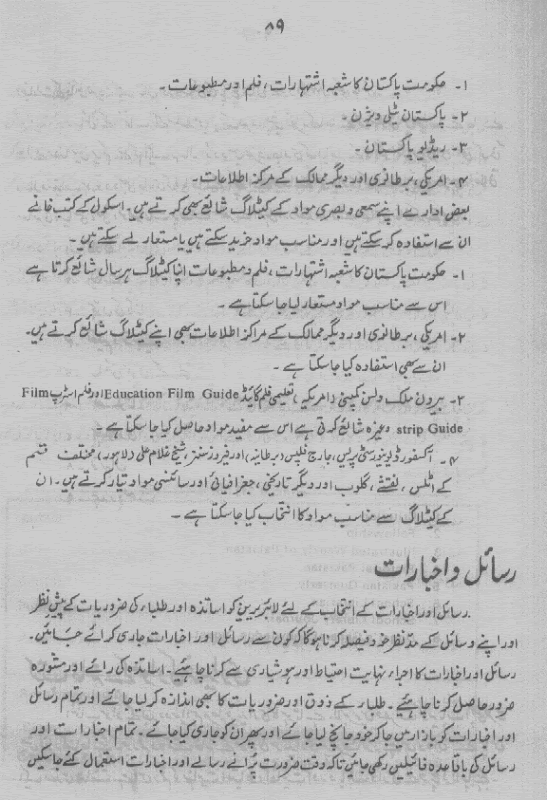 ۸۹
۱۔ حکومت پاکستان کا شعبہ اشتہارات، فلم اور مطبوعات۔
۲۔ پاکستان ٹیلی ویژن۔
۳۔ ریڈیو پاکستان۔
۴۔ امریکی، برطانوی اور دیگر ممالک کے مرکز اطلاعات۔
بعض ادارے اپنے سمعی و بصری مواد کے کیٹلاگ شائع بھی کرتے ہیں۔ اسکول کے کتب خانے
ان سے استفادہ کر سکتے ہیں اور مناسب مواد خرید سکتے ہیں یا مستعار لے سکتے ہیں۔
۱۔ حکومت پاکستان کا شعبہ اشتہارات، فلم و مطبوعات اپنا کیٹلاگ ہر سال شائع کرتا ہے
اس سے مناسب مواد مستعار لیا جا سکتا ہے۔
۲۔ امریکی، برطانوی اور دیگر ممالک کے مراکز اطلاعات بھی اپنے کیٹلاگ شائع کرتے ہیں۔
ان سے بھی استفادہ کیا جا سکتا ہے۔
۳۔ بیرون ملک ولسن کمپنی (امریکہ) تعلیمی فلم گائیڈ Education Film Guide اور فلم اسٹرپ Film
strip Guide وغیرہ شائع کرتی ہے اس سے مفید مواد حاصل کیا جا سکتا ہے۔
۴۔ آکسفورڈ یونیورسٹی پریس، جارج فلپس (برطانیہ) اور فیروز سنز، شیخ غلام علی (لاہور) مختلف قسم
کے اٹلس، نقشے، گلوب اور دیگر تاریخی، جغرافیائی اور سائنسی مواد تیار کرتے ہیں۔ ان
کے کیٹلاگ سے مناسب مواد کا انتخاب کیا جا سکتا ہے۔
رسائل و اخبارات
رسائل اور اخبارات کے انتخاب کے لئے لائبریرین کو اساتذہ اور طلباء کی ضروریات کے پیش نظر
اور اپنے وسائل کے مدنظر خود فیصلہ کرنا ہوگا کہ کون سے رسائل اور اخبارات جاری کرائے جائیں۔
رسائل اور اخبارات کا اجراء نہایت احتیاط اور ہوشیاری سے کرنا چاہیے۔ اساتذہ کی رائے اور مشورہ
ضرور حاصل کرنا چاہیئے۔ طلباء کے ذوق اور ضروریات کا بھی اندازہ کر لیا جائے اور تمام رسائل
اور اخبارات کو بازار میں جا کر خود جانچ لیا جائے اور پھر ان کو جاری کیا جائے۔ تمام اخبارات اور
رسائل کی باقاعدہ فائلیں رکھی جائیں تاکہ وقت ضرورت پرانے رسالے اور اخبارات استعمال کئے جا سکیں